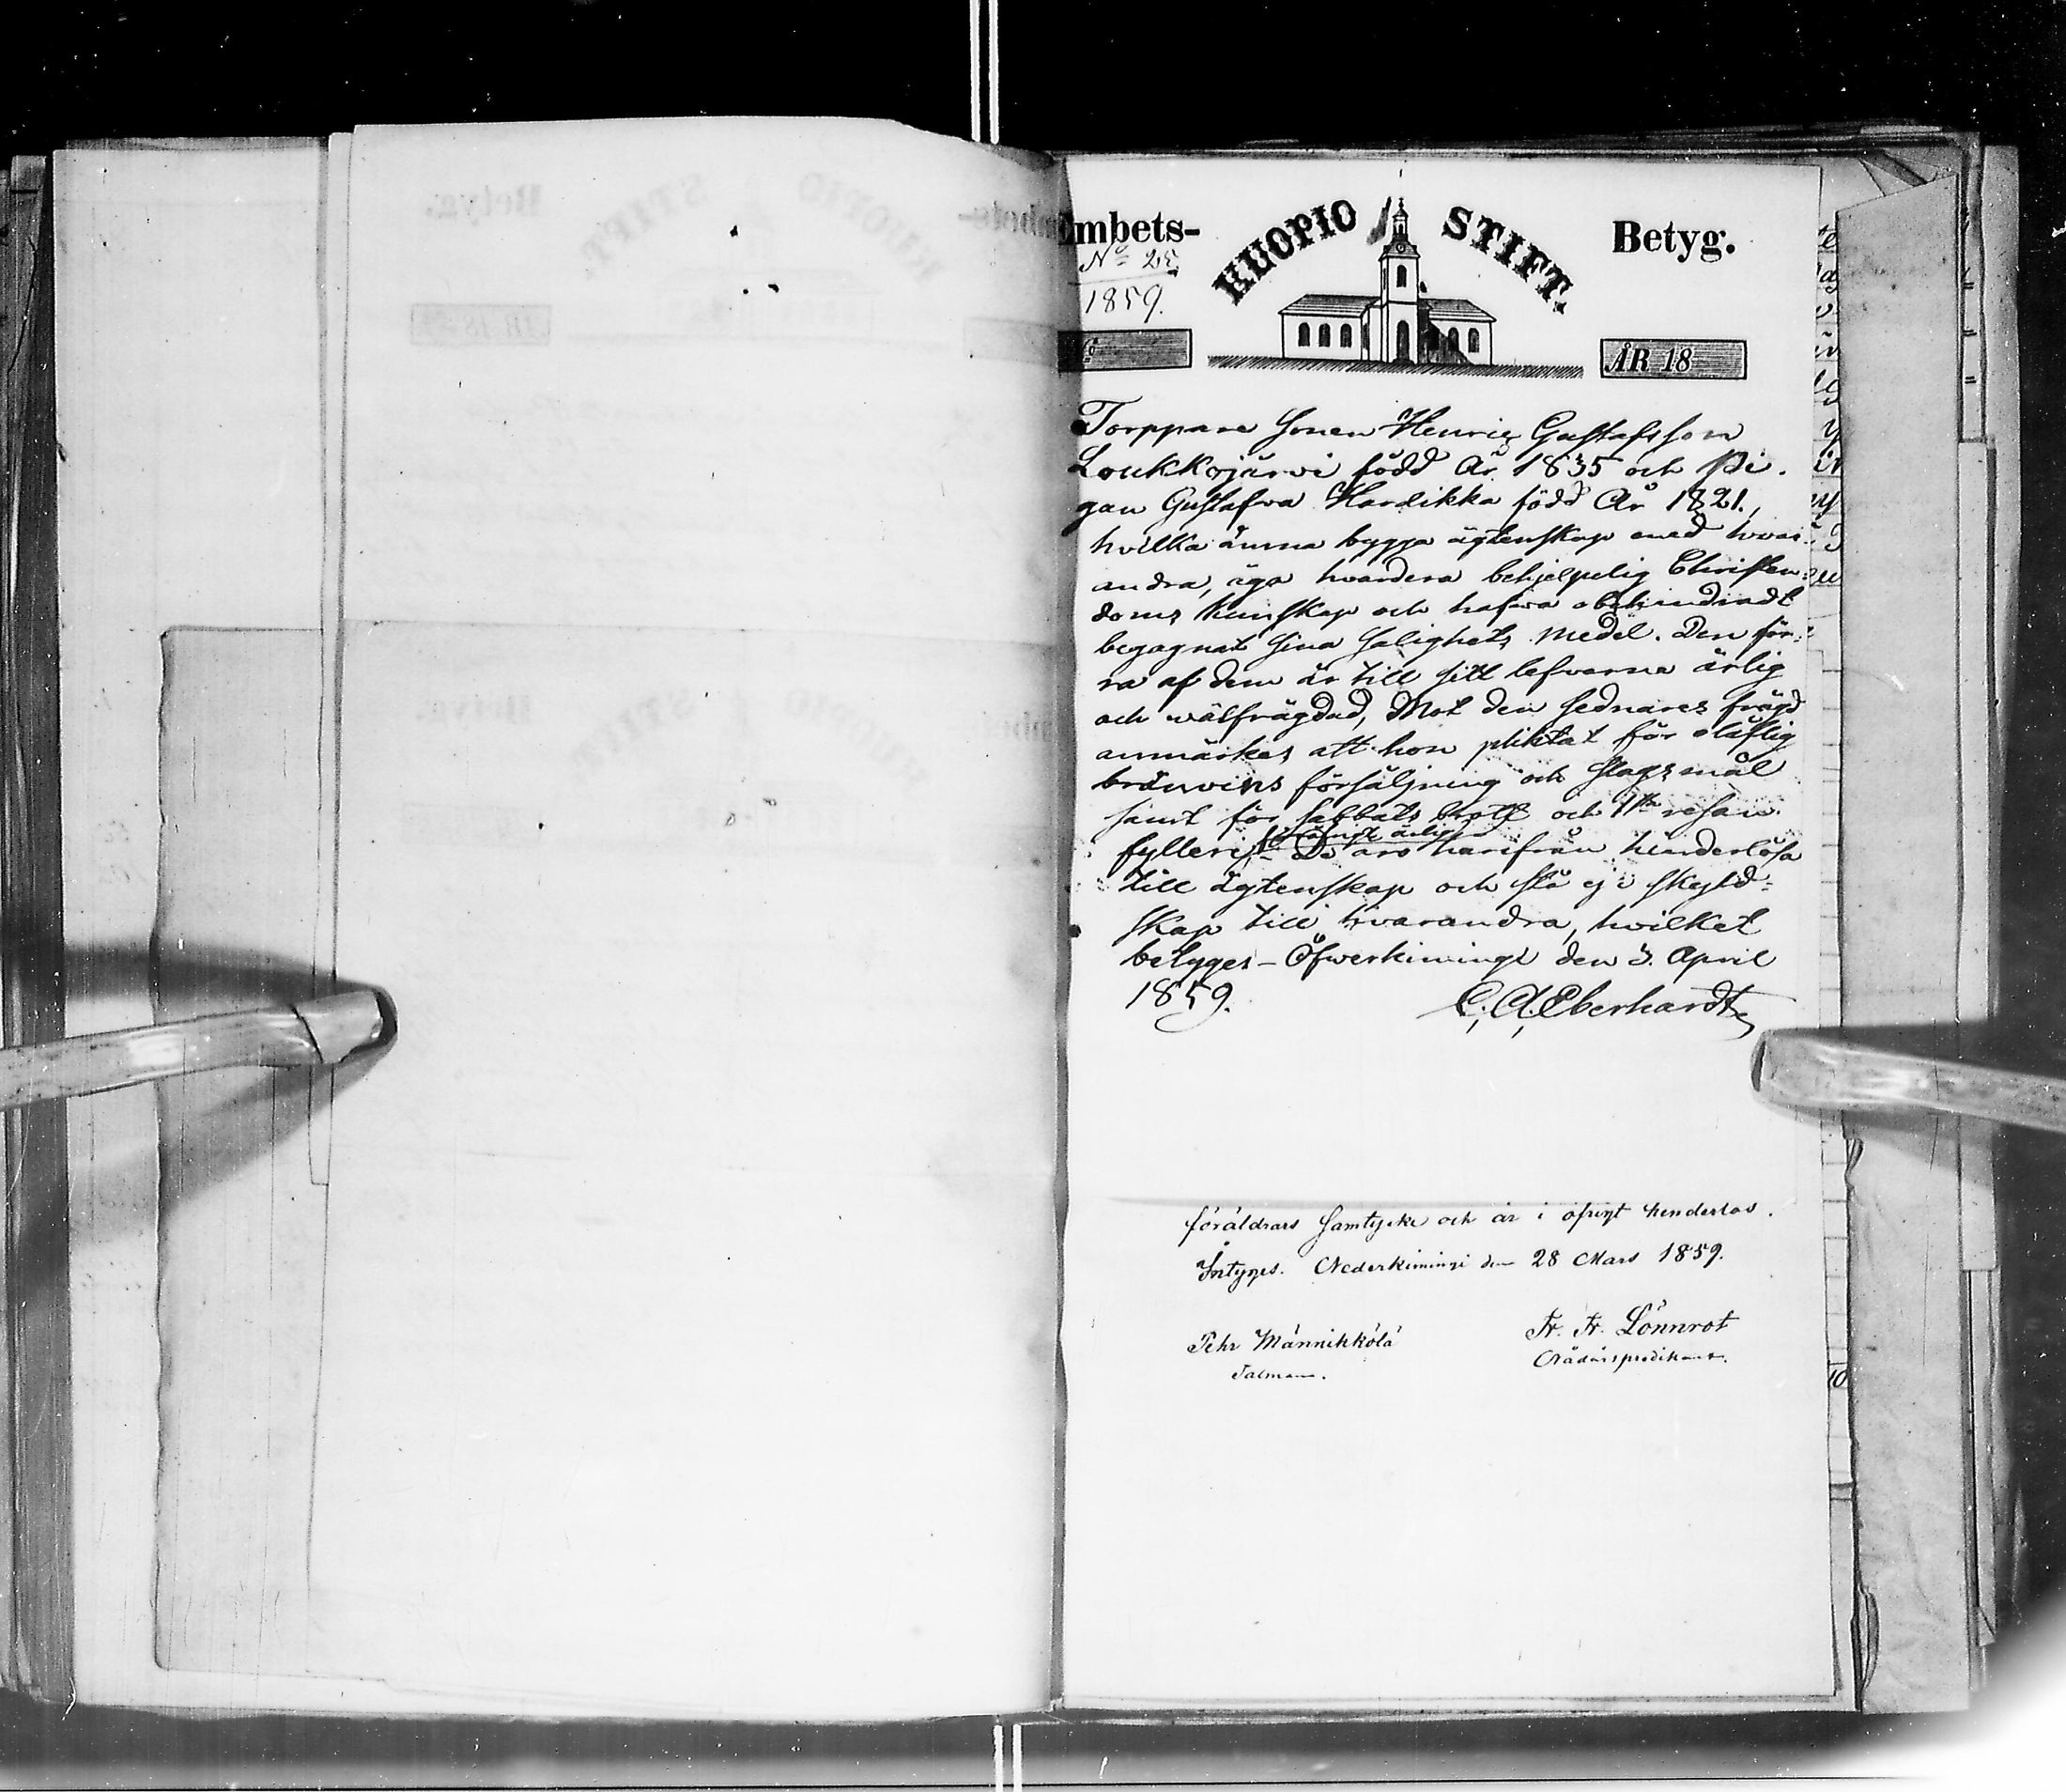 Embets-
KUOPIO STIFT.
Betyg.
No 25
1859.
ÅR 18
Torppare sonen Henric Gustafsson
Loukkojärvi född År 1835 och Pi-
gan Gustafva Hardikka född År 1821.,
hvilka ämna bygga ägtenskap med hvar-
andra, äga hvardera behjelpelig Christen-
doms kunskap och hafva obehindradt
begagnat sina salighets medel. Den för-
ra af dem är till sitt lefverne ärlig
och wälfrägdad, Mot den sednares frägd
anmärkes att hon pliktat för olaflig
bränvins försäljning och slagsmål
samt för sabbats brott och 1sta resan
fylleri, - De äro härifrån hinderlösa
till ägtenskap och stå ej i skyld-
skap till hvarandra, hvilket
betyges - Öfwerkimingi den 3. April
1859.
C. A. Eberhardt
föräldrars samtycke och är i öfrigt hinderlös.
Intyges. Nederkimingi den 28 Mars 1859.
Pehr Männikkölä
Talman.
Fr. Fr. Lönnrot
Nådårspredikant.